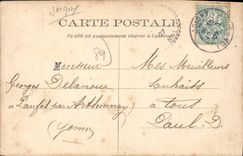 CARTE POSTALE
Ce côté est exclusivement réservé à l'adresse
89
Monsieur
Georges Delanoue
à Paufol par Arthonnay
(Yonne)
Mes Meilleurs
Souhaits
à tous
Paul. D.